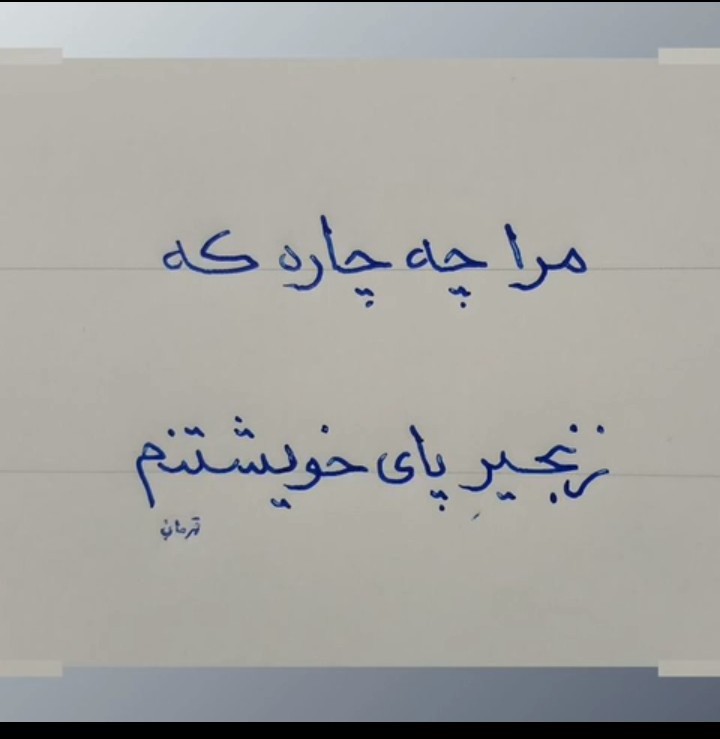 مرا چه چاره که
زنجیرِ پای خویشتنم